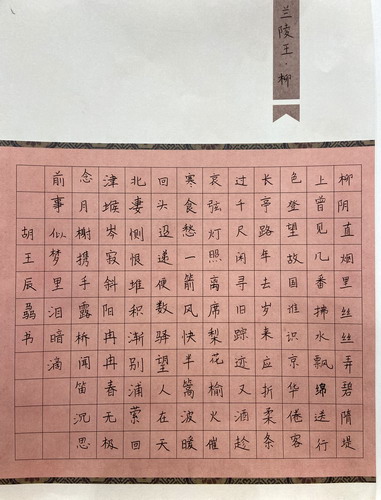 兰陵王·柳
柳阴直烟里丝丝弄碧隋堤
上曾见几番拂水飘绵送行
色登望故国谁识京华倦客
长亭路年去岁来应折柔条
过千尺闲寻旧踪迹又酒趁
哀弦灯照离席梨花榆火催
寒食愁一箭风快半篙波暖
回头迢递便数驿望人在天
北凄恻恨堆积渐别浦萦回
津堠岑寂斜阳冉冉春无极
念月榭携手露桥闻笛沉思
前事似梦里泪暗滴
胡王辰骉书